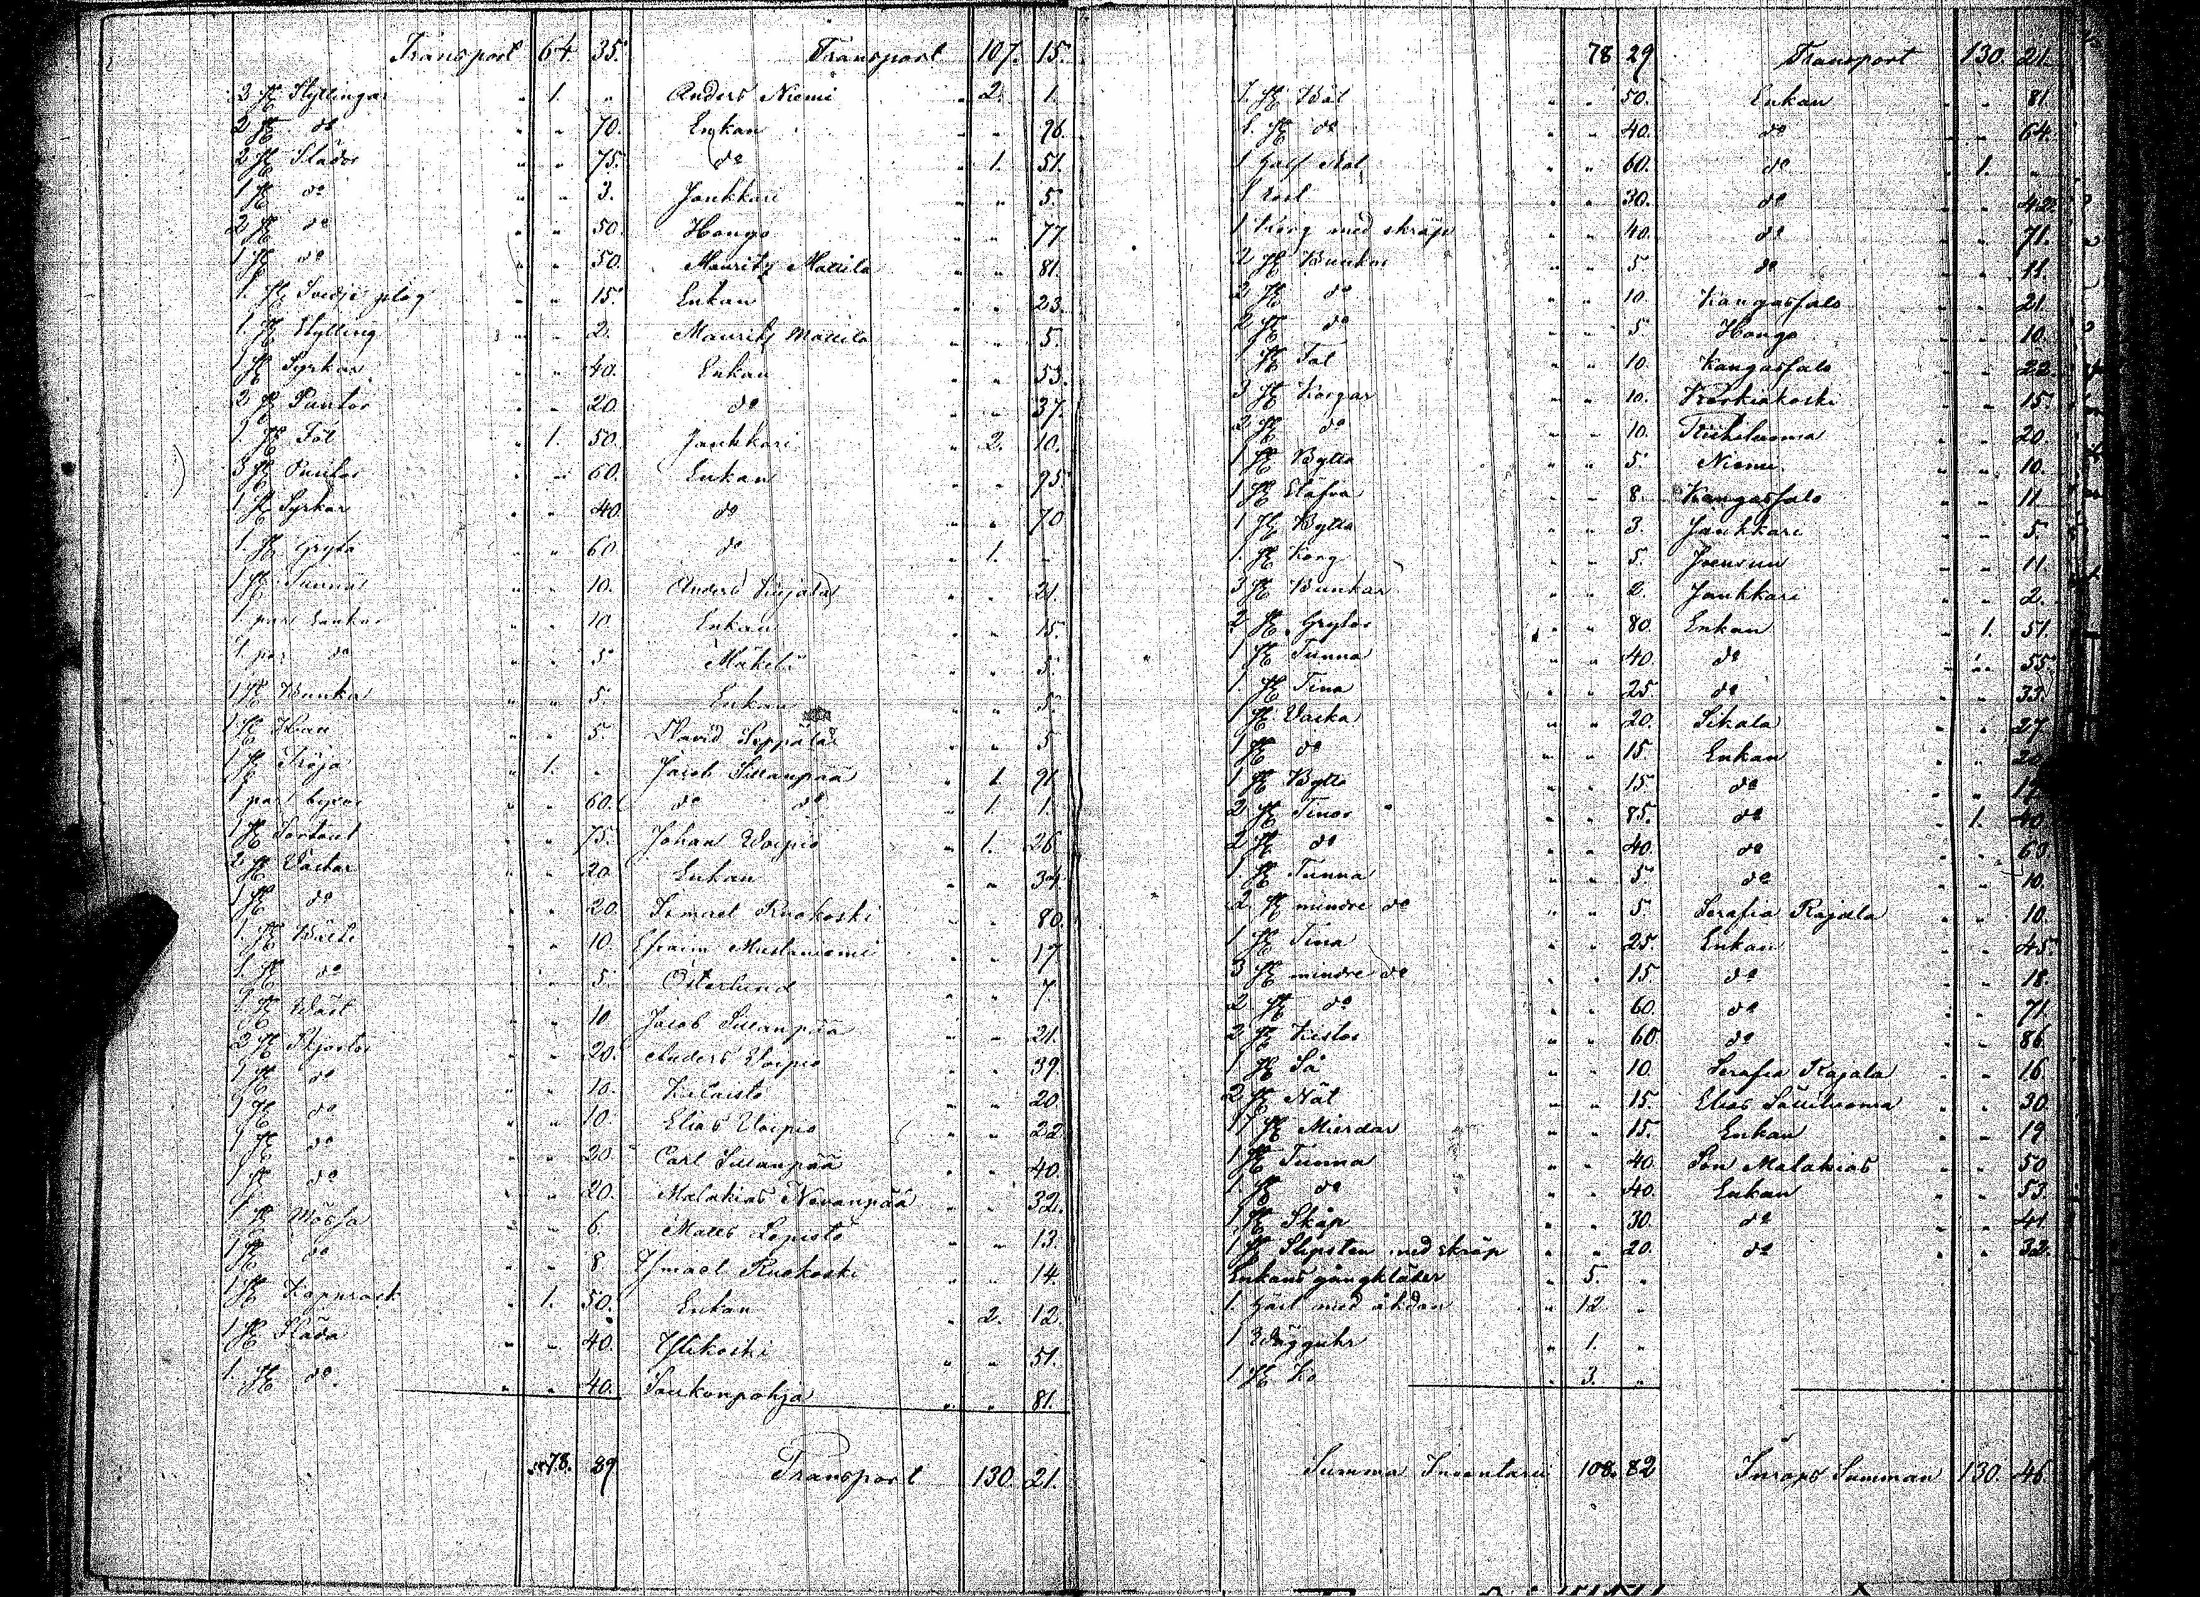 Transport 64 35. Transport 107. 15.
3 st Slyttingar " 1. " Anders Niemi " 2. 1.
2 st do " " 70. Enkan " " 96.
2 st Slädor " " 75. do " 1. 51.
1 st do " " 3. Jankkari " " 5.
2 st do " " 50. Hongo " " 77
1 st do " " 50. Mauritz Mattila " " 81.
1. st Svedje plog " " 15 Enkan " " 23.
1 st Slytting " " 2. Mauritz Mattila " " 5.
1 st Syrkar " " 40. Enkan " " 53.
2 st Puntor " " 20. do " " 37.
1. st Föl " 1. 50. Jankkari " 2. 10.
3 st Puntor " " 60. Enkan " " 95.
1 st Syrkar " " 40. do " " 70
1. st Gryta " " 60. do " 1. "
1 st Tunnor " " 10. Anders " " 21.
1. par Lankor " " 10 Enkan " " 15.
1 par do " " 5 Mäkelä " " 5.
1 st Bunka " " 5. Enkan " " 5.
1 st " " 5. David Seppälä " " 5
1 st Tröja " 1. " Jacob Sillanpää " 1. 91.
1 par byxor " " 60. do do " 1. 1.
1 st Sortout " " 75. Johan Woipio " 1. 26
2 st Västar " " 20. Enkan " " 34.
1 st do " " 20. Ismael Ruokoski " " 80.
1. st Bälte " " 10. Efraim Mustaniemi " " 17
1. st do " " 5. Österlund " " 7
1 st Wäst " " 10. Jacob Sillanpää " " 21.
2 st Skjortor " " 20. Anders Woipio " " 39
1 st do " " 10. " " 20
1 st do " " 10. Elias Woipio " " 22
1 st do " " 20. Carl Sillanpää " " 40.
1 st do " " 20. Malakias Nevanpää " " 32.
1 st Mössa " " 6. Matts Lepistö " " 13.
1 st do " " 8. Ismael Ruokoski " " 14.
1 st Kapprock " 1. 50. Enkan " 2. 12.
1 st Släda " " 40. " " 51.
1. st do " " 40. Soukonpohja " " 81.
78. 29 Transport 130. 21.
78 29 Transport 130. 21.
1. st Bål " " 50. Enkan " " 81.
1. st do " " 40. do " " 64.
1 half " " 60. do " 1. "
1 " " 30. do " " 42.
1 Korg med skräp " " 40. do " " 71.
2 st Bunkar " " 5. do " " 11.
2 st do " " 10. Kangassalo " " 21.
2 st do " " 5. Hongo " " 10.
1 st Fat " " 10. Kangassalo " " 22.
3 st Korgar " " 10. Koskiakoski " " 15.
2 st do " " 10. " " 20.
1 st Bytta " " 5. Niemi " " 10.
1 st Stäfva " " 8. Kangassalo " " 11.
1 st Bytta " " 3. Jankkari " " 5.
1. st Korg " " 5. Joensuu " " 11
3 st Bunkar " " 2. Jankkari " " 2.
2 st Grytor " " 80. Enkan " 1. 51.
1 st Tunna " " 40. do " " 55.
1. st Tina " " 25. do " " 33.
1 st Vacka " " 20. Sikala " " 27.
1 st do " " 15. Enkan " "
1 st Bytta " " 15. do " "
2 st Tinor " " 85. do " 1. 40.
2 st do " " 40. do " " 60.
1. st Tunna " " 5. do " " 10.
2. st mindre do " " 5 Serafia Rajala " " 10.
1 st Tina " " 25. Enkan " " 45.
3 st mindre do " " 15. do " " 18.
2 st do " " 60. do " " 71.
2 st Kistor " " 60. do " " 86
1 st Så " " 10. Serafia Rajala " " 16
2 st Nät " " 15. Elias " " 30
17 st Mierdar " " 15. Enkan " " 19
1 st Tunna " " 40. Son Malakias " " 50
1. st do " " 40. Enkan " " 53.
1. st Skåp " " 30. do " " 41.
1 st Slipsten med skräp " " 20. do " " 32.
Enkans gångkläder " 5. "
1. Häst med åkdon " 12 "
1 Wägguhr " 1. "
1 st Ko " 3. "
Summa Inventarii 108. 82 Inrops Summan 130. 46.